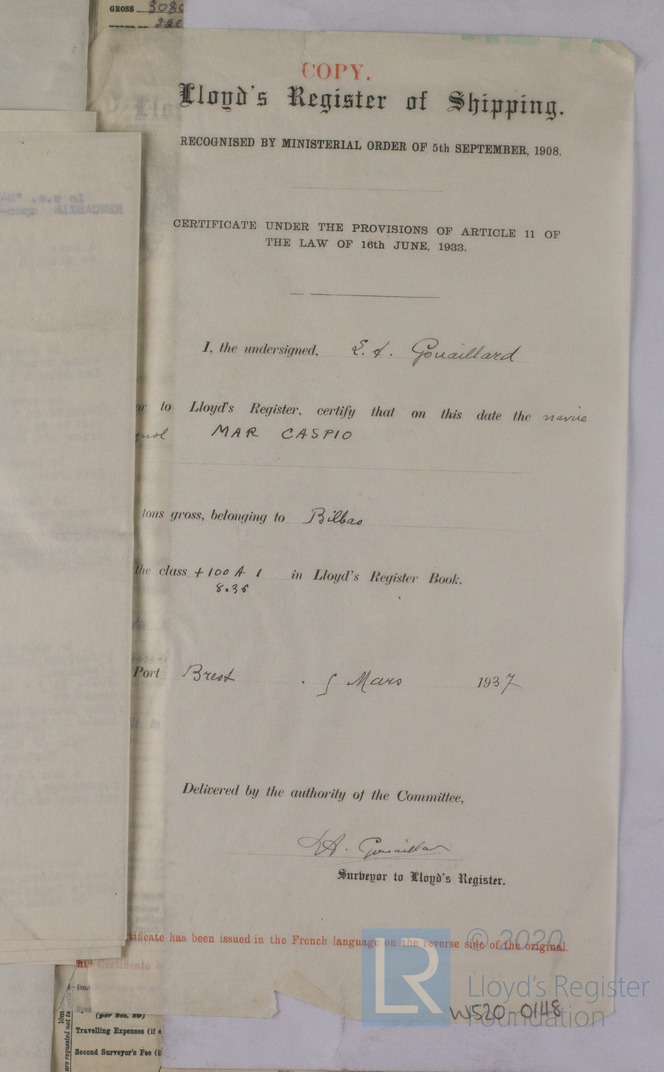 GROSS 3086
COPY.
Lloyd's Register of Shipping.
RECOGNISED BY MINISTERIAL ORDER OF 5th SEPTEMBER, 1908.
CERTIFICATE UNDER THE PROVISIONS OF ARTICLE 11 OF
THE LAW OF 16th JUNE, 1933.
I, the undersigned, E. A. Gouaillard
or to Lloyd's Register, certify that on this date the navire
gnol MAR CASPIO
tons gross, belonging to Bilbao
the class +100 A 1 in Lloyd's Register Book.
8.35
Port Brest 5 Mars 1937
Delivered by the authority of the Committee,
E.A. Gouaillard
Surveyor to Lloyd's Register.
tificate has been issued in the French language on the reverse side of the original
his Certificate
© 2020
LR Lloyd's Register
Foundation
W520-0148
(per Rec. 59)
Travelling Expenses (if
Second Surveyor's Fee